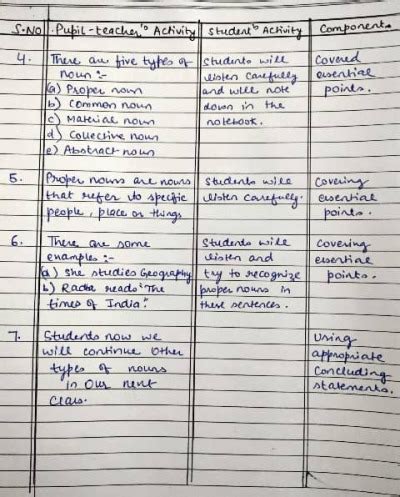 S.No. Pupil-teacher's Activity Student's Activity Components
4. There are five types of noun :-
(a) Proper noun
b) Common noun
c) Material noun
d) Collective noun
e) Abstract noun
Students will
listen carefully
and will note
down in the
notebook.
Covered
essential
points.
5. Proper nouns are nouns
that refer to specific
people, place or things
Students will
listen carefully.
Covering
essential
points.
6. There are some
examples :-
(a) She studies Geography
b) Radha reads "The
times of India."
Students will
listen and
try to recognize
proper nouns in
these sentences.
Covering
essential
points.
7. Students now we
will continue other
types of nouns
in our next
class.
Using
appropriate
concluding
statements.